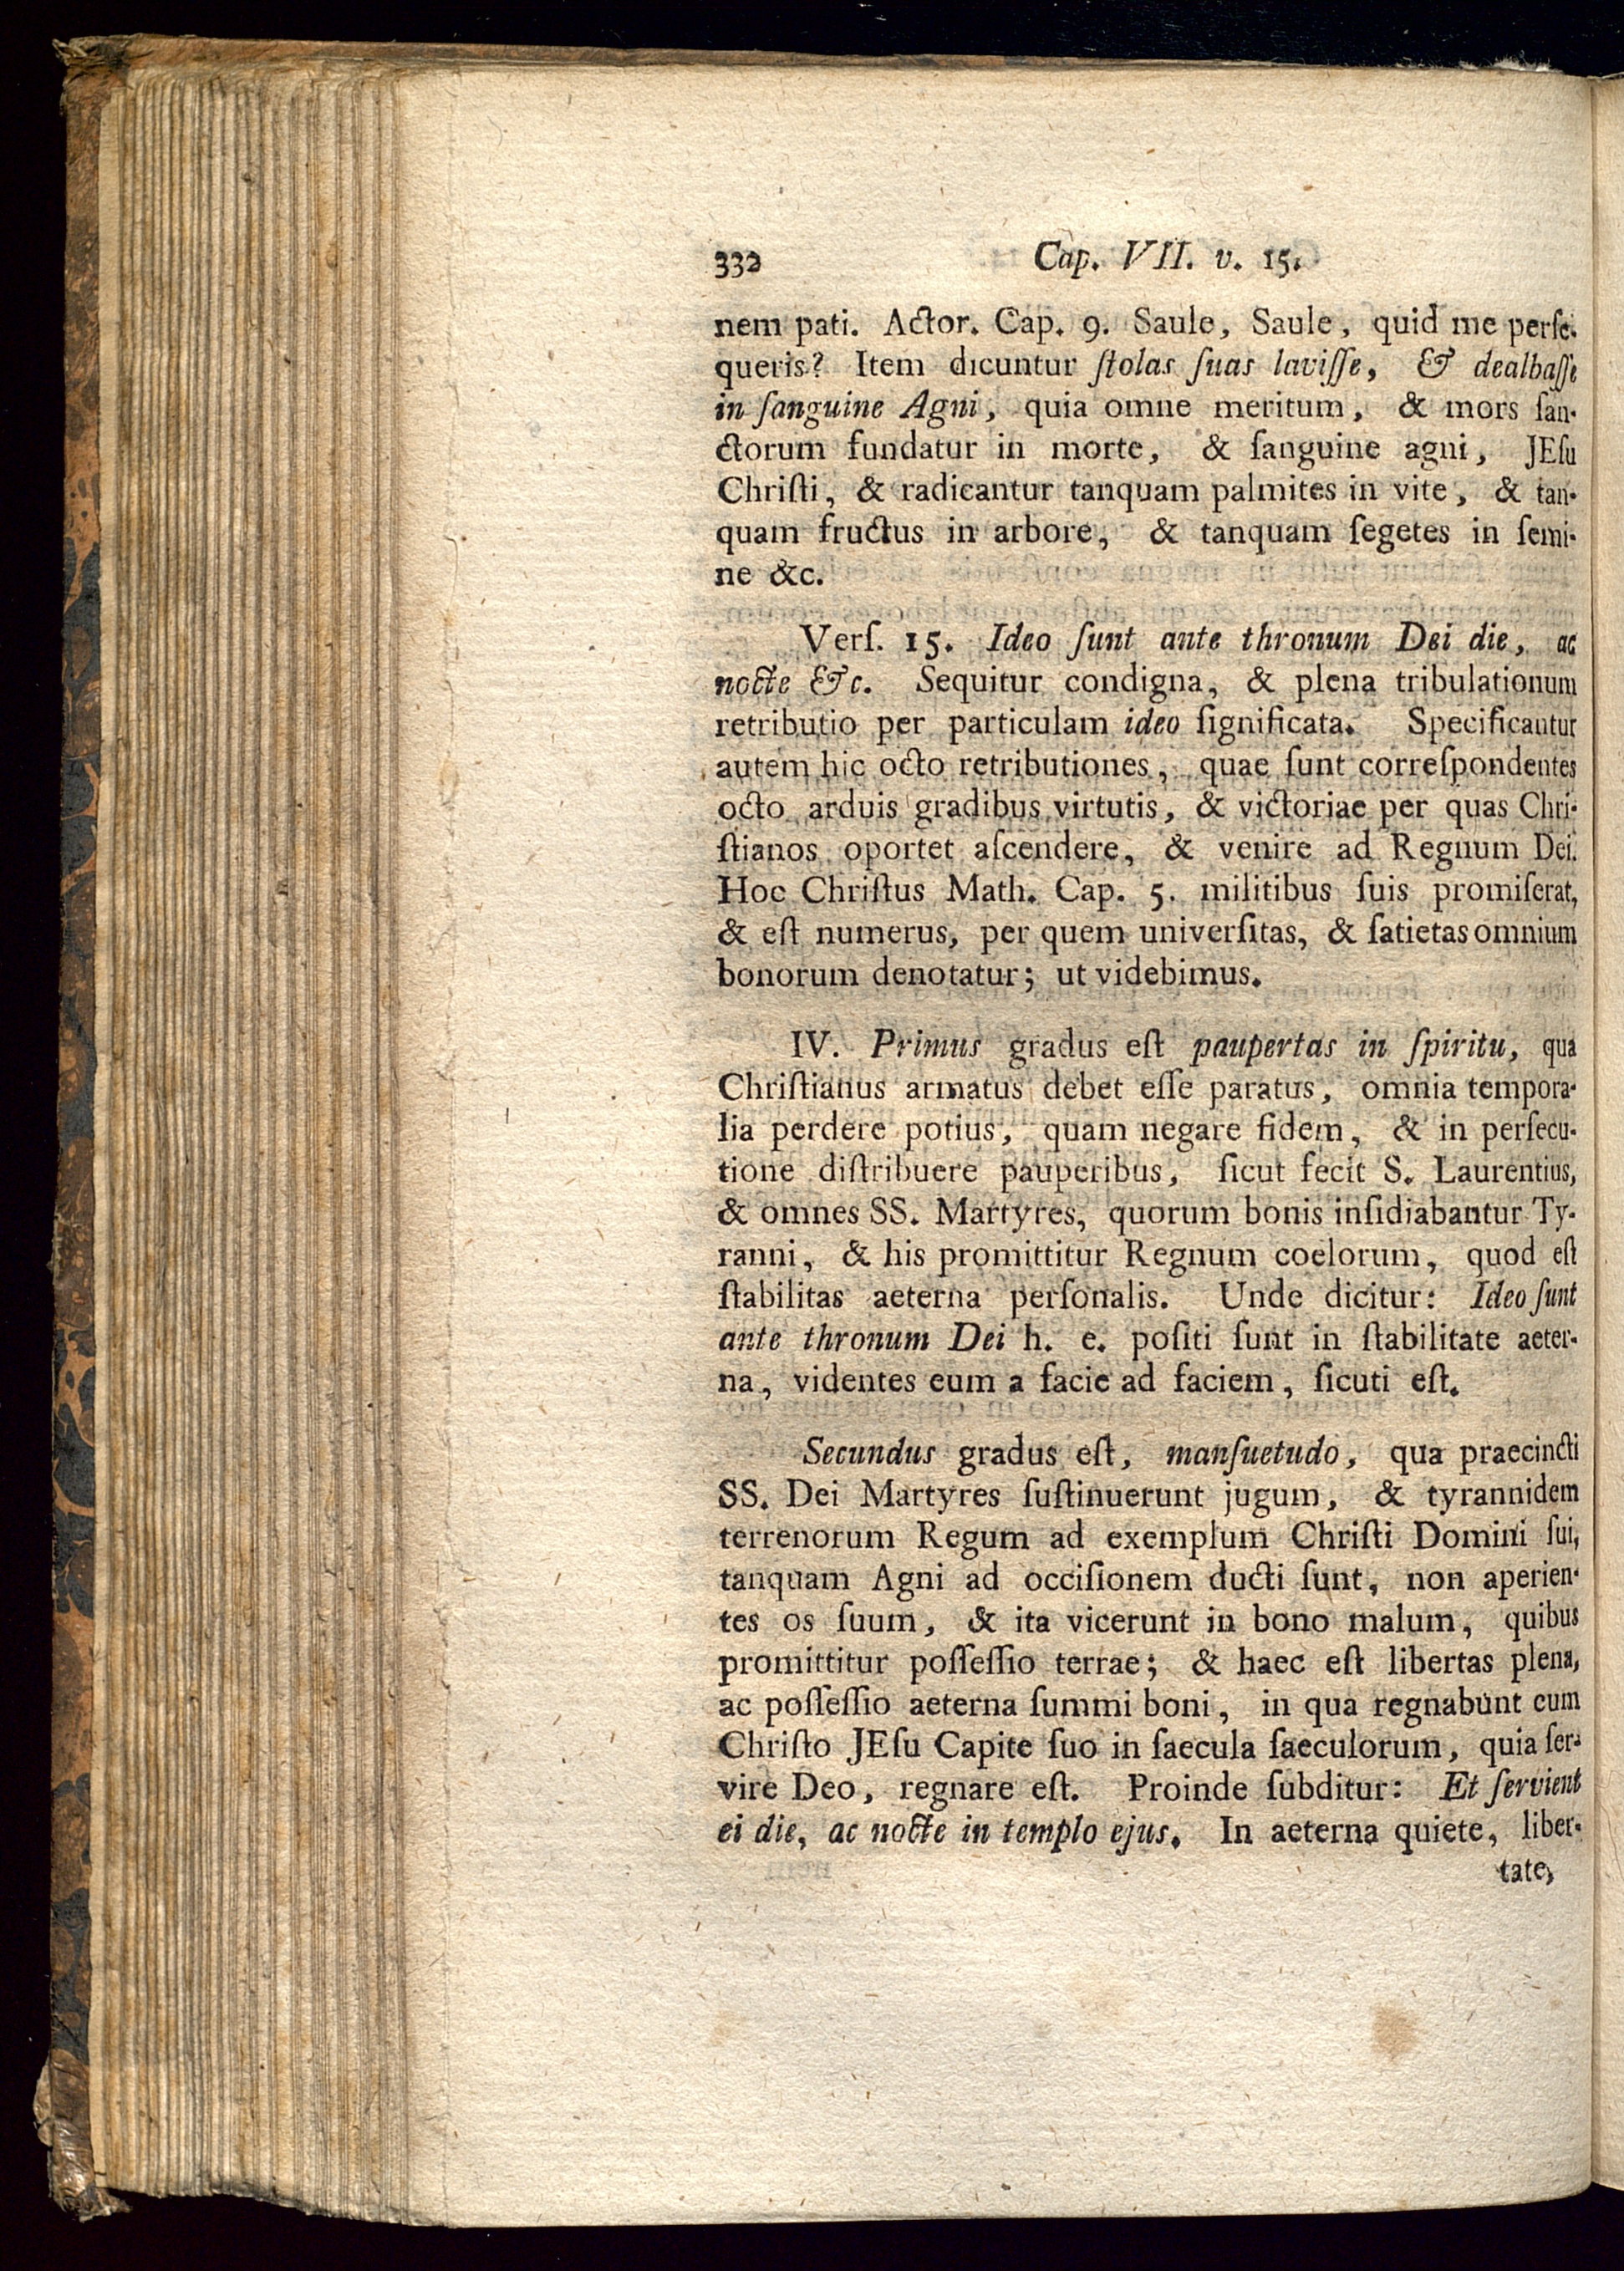 332 Cap. VII. v. 15.
nem pati. Actor. Cap. 9. Saule, Saule, quid me perſe-
queris? Item dicuntur ſtolas ſuas laviſſe, & dealbaſſe
in ſanguine Agni, quia omne meritum, & mors ſan-
ctorum fundatur in morte, & ſanguine agni, JEſu
Chriſti, & radicantur tanquam palmites in vite, & tan-
quam fructus in arbore, & tanquam ſegetes in ſemi-
ne &c.
Verſ. 15. Ideo ſunt ante thronum Dei die, ac
nocte &c. Sequitur condigna, & plena tribulationum
retributio per particulam ideo ſignificata. Specificantur
autem hic octo retributiones, quae ſunt correſpondentes
octo arduis gradibus virtutis, & victoriae per quas Chri-
ſtianos oportet aſcendere, & venire ad Regnum Dei.
Hoc Chriſtus Math. Cap. 5. militibus ſuis promiſerat,
& eſt numerus, per quem univerſitas, & ſatietas omnium
bonorum denotatur; ut videbimus.
IV. Primus gradus eſt paupertas in ſpiritu, qua
Chriſtianus armatus debet eſſe paratus, omnia tempora-
lia perdere potius, quam negare fidem, & in perſecu-
tione diſtribuere pauperibus, ſicut fecit S. Laurentius,
& omnes SS. Martyres, quorum bonis inſidiabantur Ty-
ranni, & his promittitur Regnum coelorum, quod eſt
ſtabilitas aeterna perſonalis. Unde dicitur: Ideo ſunt
ante thronum Dei h. e. poſiti ſunt in ſtabilitate aeter-
na, videntes eum a facie ad faciem, ſicuti eſt.
Secundus gradus eſt, manſuetudo, qua praecincti
SS. Dei Martyres ſuſtinuerunt jugum, & tyrannidem
terrenorum Regum ad exemplum Chriſti Domini ſui,
tanquam Agni ad occiſionem ducti ſunt, non aperien-
tes os ſuum, & ita vicerunt in bono malum, quibus
promittitur poſſeſſio terrae; & haec eſt libertas plena,
ac poſſeſſio aeterna ſummi boni, in qua regnabunt cum
Chriſto JEſu Capite ſuo in ſaecula ſaeculorum, quia ſer-
vire Deo, regnare eſt. Proinde ſubditur: Et ſervient
ei die, ac nocte in templo ejus. In aeterna quiete, liber-
tate,